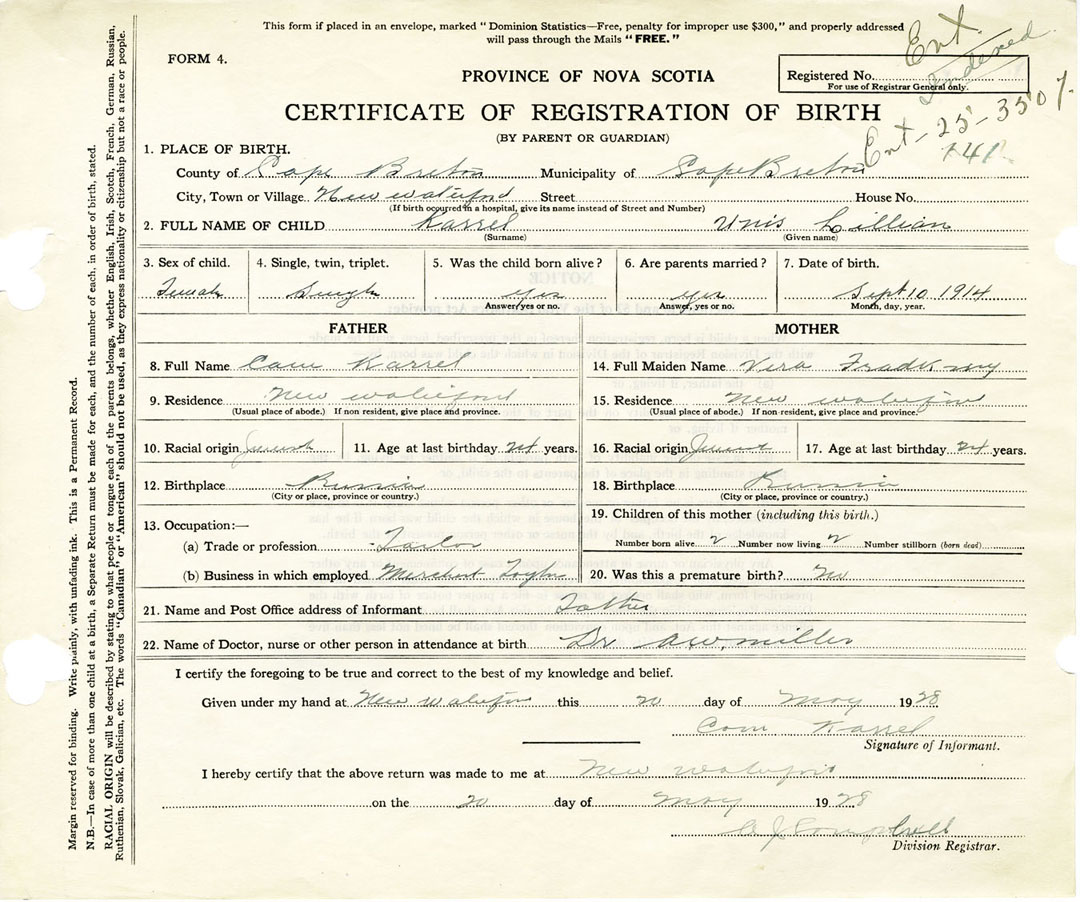 This form if placed in an envelope, marked "Dominion Statistics—Free, penalty for improper use $300," and properly addressed
will pass through the Mails "FREE."
Ent.
FORM 4.
PROVINCE OF NOVA SCOTIA
Registered No.
For use of Registrar General only.
CERTIFICATE OF REGISTRATION OF BIRTH
Ent-25-3507
(BY PARENT OR GUARDIAN)
1. PLACE OF BIRTH.
County of Cape Breton Municipality of Cape Breton
City, Town or Village New waterford Street House No.
(If birth occurred in a hospital, give its name instead of Street and Number)
2. FULL NAME OF CHILD Karrel Unis Lillian
(Surname) (Given name)
3. Sex of child. 4. Single, twin, triplet. 5. Was the child born alive? 6. Are parents married? 7. Date of birth.
Female Single yes yes Sept 10 1914
Answer yes or no. Answer, yes or no. Month, day, year.
FATHER MOTHER
8. Full Name Cam Karrel 14. Full Maiden Name Vera
9. Residence New waterford 15. Residence New waterford
(Usual place of abode.) If non resident, give place and province. (Usual place of abode.) If non-resident, give place and province.
10. Racial origin Jewish 11. Age at last birthday 24 years. 16. Racial origin Jewish 17. Age at last birthday 24 years.
12. Birthplace Russia 18. Birthplace Russia
(City or place, province or country.) (City or place, province or country.)
13. Occupation:— 19. Children of this mother (including this birth.)
(a) Trade or profession Tailor Number born alive 2 Number now living 2 Number stillborn (born dead)
(b) Business in which employed Merchant 20. Was this a premature birth? No
21. Name and Post Office address of Informant Father
22. Name of Doctor, nurse or other person in attendance at birth Dr AW, miller
I certify the foregoing to be true and correct to the best of my knowledge and belief.
Given under my hand at New waterford this 20 day of May 1928
Cam Karrel
Signature of Informant.
I hereby certify that the above return was made to me at New waterford
on the 20 day of May 1928
Division Registrar.
Margin reserved for binding. Write plainly, with unfading ink. This is a Permanent Record.
N.B.—In case of more than one child at a birth, a Separate Return must be made for each, and the number of each, in order of birth, stated.
RACIAL ORIGIN will be described by stating to what people or tongue each of the parents belongs, whether English, Irish, Scotch, French, German, Russian,
Ruthenian, Slovak, Galician, etc. The words "Canadian" or "American" should not be used, as they express nationality or citizenship but not a race or people.